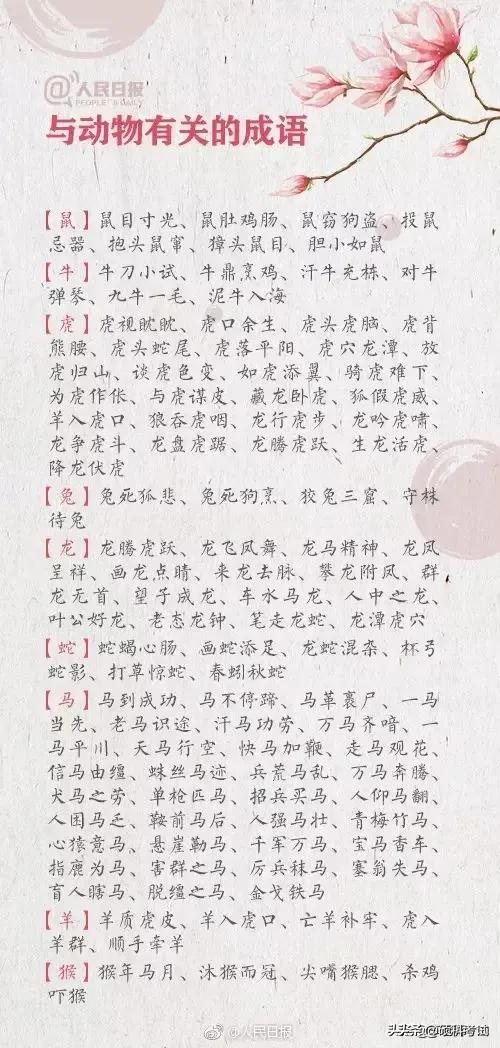 @人民日报
PEOPLE'S DAILY
与动物有关的成语
【鼠】鼠目寸光、鼠肚鸡肠、鼠窃狗盗、投鼠
忌器、抱头鼠窜、獐头鼠目、胆小如鼠
【牛】牛刀小试、牛鼎烹鸡、汗牛充栋、对牛
弹琴、九牛一毛、泥牛入海
【虎】虎视眈眈、虎口余生、虎头虎脑、虎背
熊腰、虎头蛇尾、虎落平阳、虎穴龙潭、放
虎归山、谈虎色变、如虎添翼、骑虎难下、
为虎作伥、与虎谋皮、藏龙卧虎、狐假虎威、
羊入虎口、狼吞虎咽、龙行虎步、龙吟虎啸、
龙争虎斗、龙盘虎踞、龙腾虎跃、生龙活虎、
降龙伏虎
【兔】兔死狐悲、兔死狗烹、狡兔三窟、守株
待兔
【龙】龙腾虎跃、龙飞凤舞、龙马精神、龙凤
呈祥、画龙点睛、来龙去脉、攀龙附凤、群
龙无首、望子成龙、车水马龙、人中之龙、
叶公好龙、老态龙钟、笔走龙蛇、龙潭虎穴
【蛇】蛇蝎心肠、画蛇添足、龙蛇混杂、杯弓
蛇影、打草惊蛇、春蚓秋蛇
【马】马到成功、马不停蹄、马革裹尸、一马
当先、老马识途、汗马功劳、万马齐喑、一
马平川、天马行空、快马加鞭、走马观花、
信马由缰、蛛丝马迹、兵荒马乱、万马奔腾、
犬马之劳、单枪匹马、招兵买马、人仰马翻、
人困马乏、鞍前马后、人强马壮、青梅竹马、
心猿意马、悬崖勒马、千军万马、宝马香车、
指鹿为马、害群之马、厉兵秣马、塞翁失马、
盲人瞎马、脱缰之马、金戈铁马
【羊】羊质虎皮、羊入虎口、亡羊补牢、虎入
羊群、顺手牵羊
【猴】猴年马月、沐猴而冠、尖嘴猴腮、杀鸡
吓猴
@人民日报
头条@硕祺考试